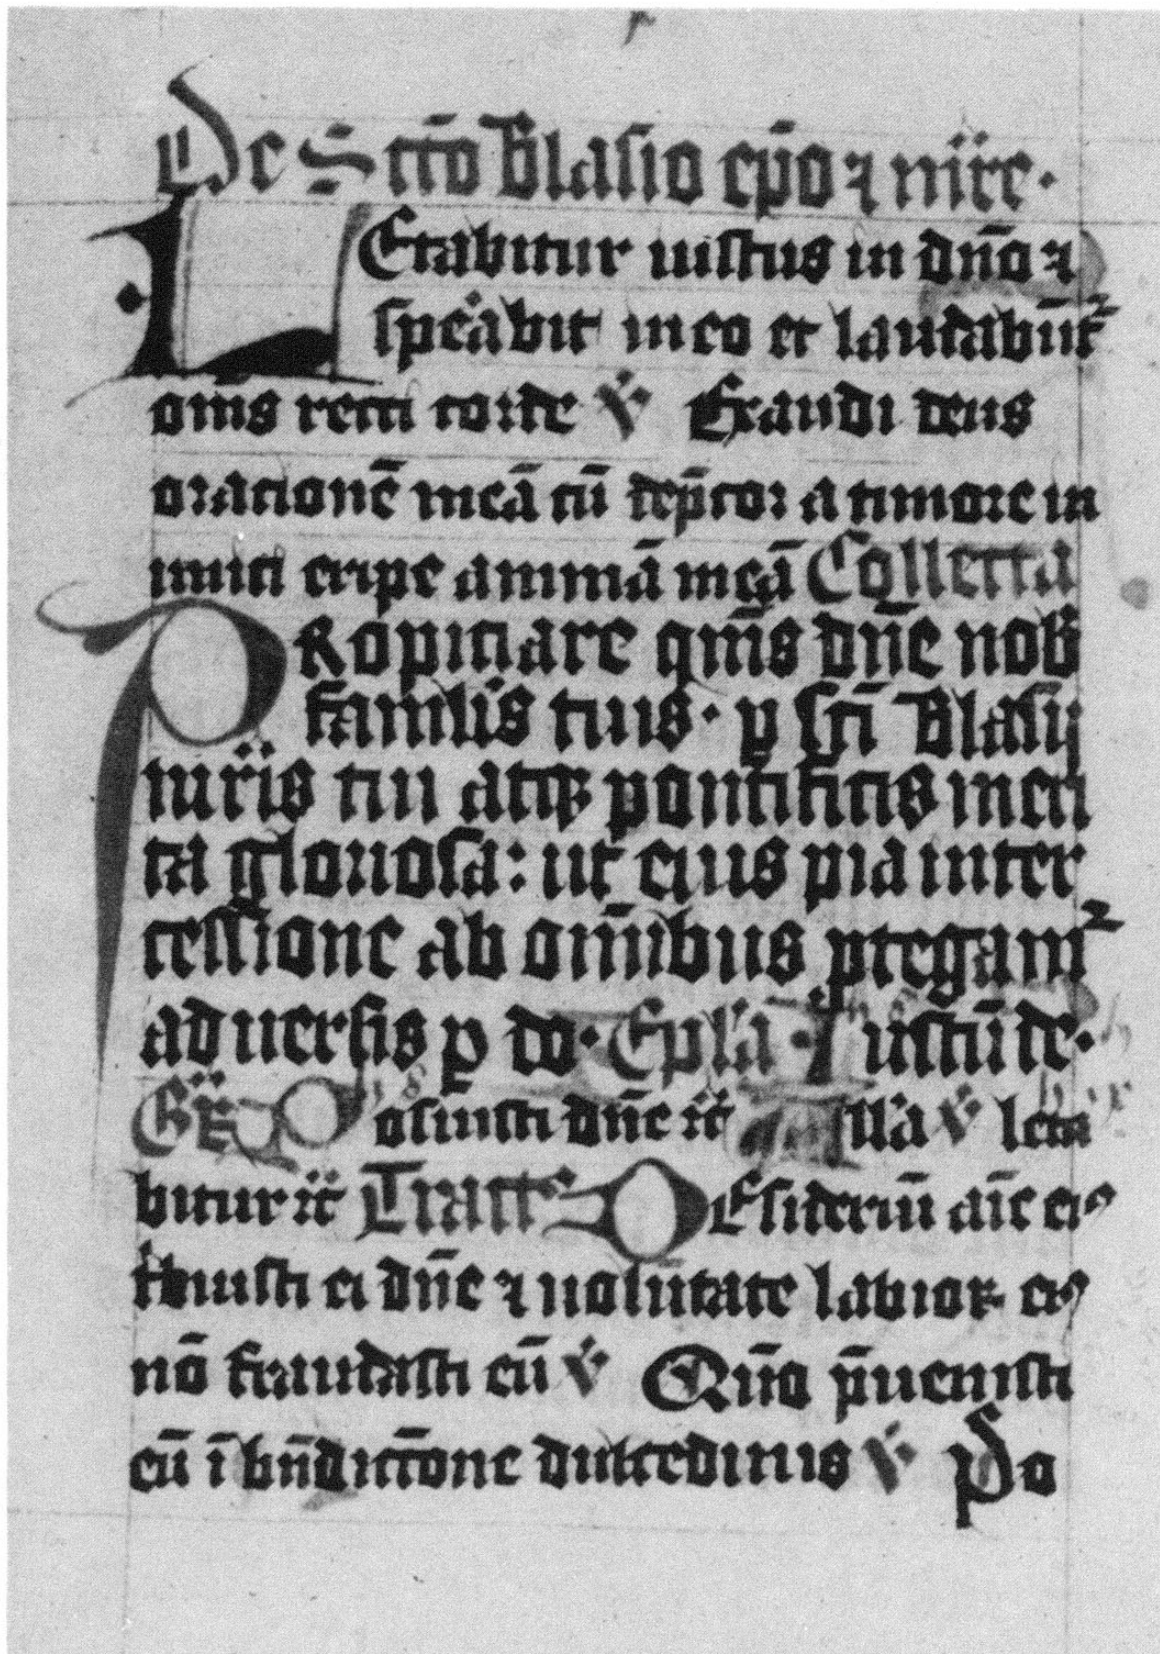 De Scto Blasio epo ⁊ mr̄re·
LEtabitur iustus in dn̄o ⁊
sperabit in eo et laudabūt᷑
om̄s recti corde ℣ Exaudi deus
orationē meā cū dep̄cor a timore in
imici eripe animā meā Collecta
PRopiciare qm̄s dn̄e nob̄
famulis tuis· ꝑ sc̄i Blasij
mr̄is tui atqꝫ pontificis meri
ta gloriosa: ut eius pia inter
cessione ab om̄ibus ꝓtegam᷑
aduersis ꝑ do· Epl̄a Iustū de·
Gr̄ Posuisti dn̄e ⁊c̄ All'a ℣ leta
bitur ⁊c̄ Tract᷒ DEsideriū aīe ei᷒
t̄buisti ei dn̄e ⁊ uolūtate labioꝝ ei᷒
nō fraudasti eū ℣ Qūo p̄uenisti
eū ī bn̄dictōne dulcedinis ℣ Po